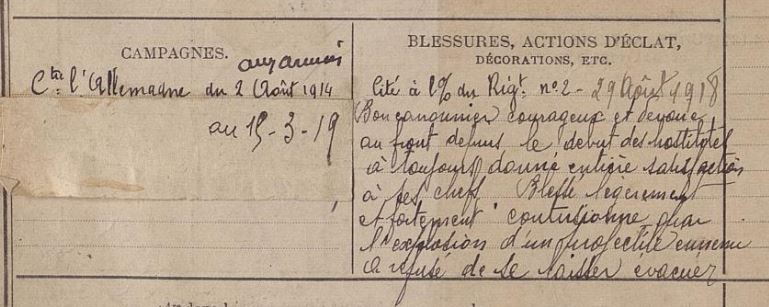 CAMPAGNES.
aux armées
Ctre l'Allemagne du 2 Août 1914
au 15-3-19
BLESSURES, ACTIONS D'ÉCLAT,
DÉCORATIONS, ETC.
Cité à l'O/ du Rigt. n°2 - 29 Août 1918
Bon canonnier courageux et dévoué
au front depuis le début des hostilités
a toujours donné entière satisfaction
à ses chefs Blessé légèrement
et fortement contusionné par
l'explosion d'un projectile ennemi
a refusé de se laisser évacuer